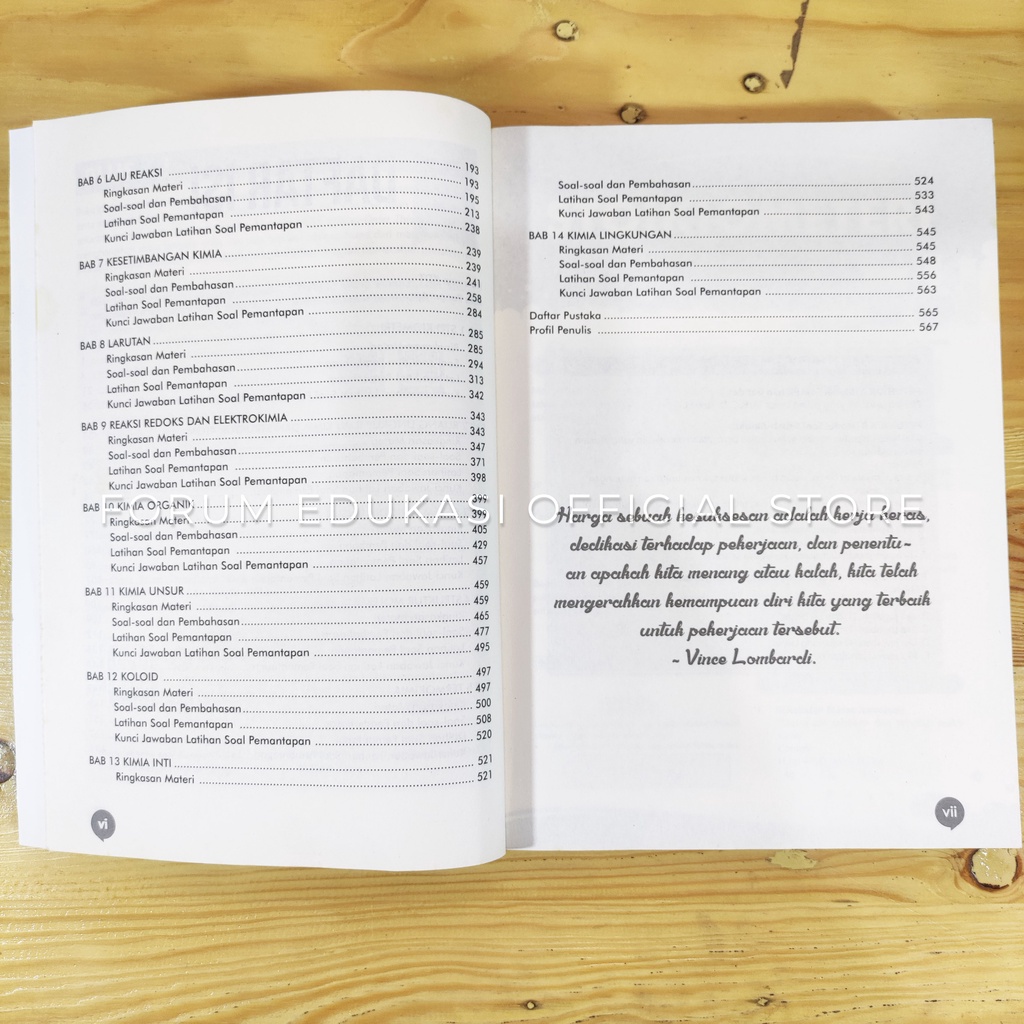 BAB 6 LAJU REAKSI ........ 193
Ringkasan Materi ........ 193
Soal-soal dan Pembahasan ........ 195
Latihan Soal Pemantapan ........ 213
Kunci Jawaban Latihan Soal Pemantapan ........ 238
BAB 7 KESETIMBANGAN KIMIA ........ 239
Ringkasan Materi ........ 239
Soal-soal dan Pembahasan ........ 241
Latihan Soal Pemantapan ........ 258
Kunci Jawaban Latihan Soal Pemantapan ........ 284
BAB 8 LARUTAN ........ 285
Ringkasan Materi ........ 285
Soal-soal dan Pembahasan ........ 294
Latihan Soal Pemantapan ........ 313
Kunci Jawaban Latihan Soal Pemantapan ........ 342
BAB 9 REAKSI REDOKS DAN ELEKTROKIMIA ........ 343
Ringkasan Materi ........ 343
Soal-soal dan Pembahasan ........ 347
Latihan Soal Pemantapan ........ 371
Kunci Jawaban Latihan Soal Pemantapan ........ 398
BAB 10 KIMIA ORGANIK ........ 399
Ringkasan Materi ........ 399
Soal-soal dan Pembahasan ........ 405
Latihan Soal Pemantapan ........ 429
Kunci Jawaban Latihan Soal Pemantapan ........ 457
BAB 11 KIMIA UNSUR ........ 459
Ringkasan Materi ........ 459
Soal-soal dan Pembahasan ........ 465
Latihan Soal Pemantapan ........ 477
Kunci Jawaban Latihan Soal Pemantapan ........ 495
BAB 12 KOLOID ........ 497
Ringkasan Materi ........ 497
Soal-soal dan Pembahasan ........ 500
Latihan Soal Pemantapan ........ 508
Kunci Jawaban Latihan Soal Pemantapan ........ 520
BAB 13 KIMIA INTI ........ 521
Ringkasan Materi ........ 521
vi
Soal-soal dan Pembahasan ........ 524
Latihan Soal Pemantapan ........ 533
Kunci Jawaban Latihan Soal Pemantapan ........ 543
BAB 14 KIMIA LINGKUNGAN ........ 545
Ringkasan Materi ........ 545
Soal-soal dan Pembahasan ........ 548
Latihan Soal Pemantapan ........ 556
Kunci Jawaban Latihan Soal Pemantapan ........ 563
Daftar Pustaka ........ 565
Profil Penulis ........ 567
Harga sebuah kesuksesan adalah kerja keras,
dedikasi terhadap pekerjaan, dan penentu-
an apakah kita menang atau kalah, kita telah
mengerahkan kemampuan diri kita yang terbaik
untuk pekerjaan tersebut.
~ Vince Lombardi.
vii
FORUM EDUKASI OFFICIAL STORE